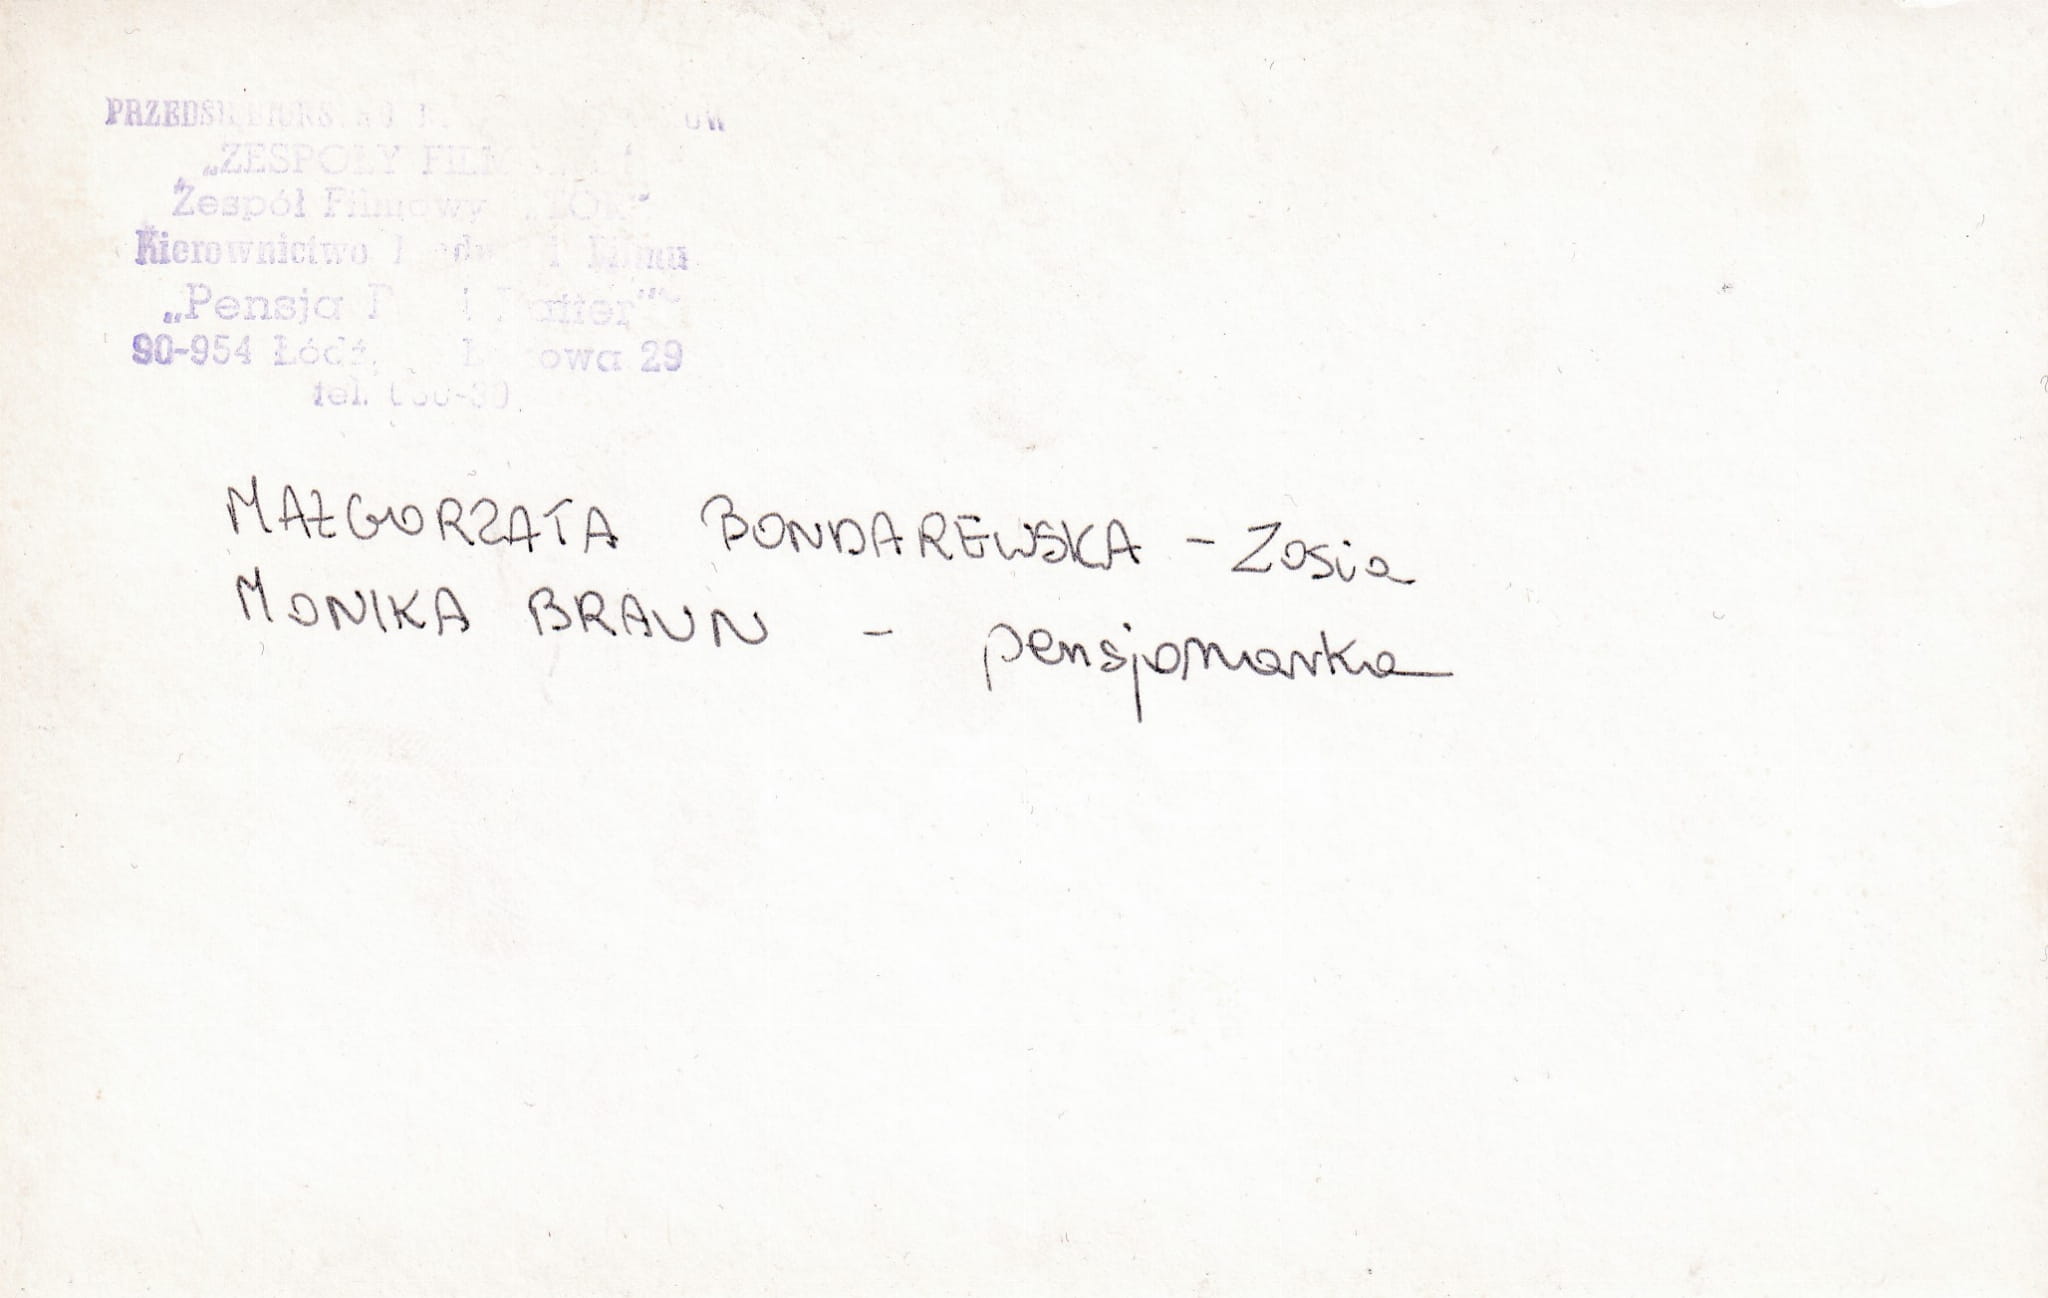 „ZESPOŁY
Zespół Filmowy „TOR”
Kierownictwo
„Pensja
90-954 Łódź, 29
tel.
MAŁGORZATA BONDAREWSKA - Zosia
MONIKA BRAUN - pensjonarka